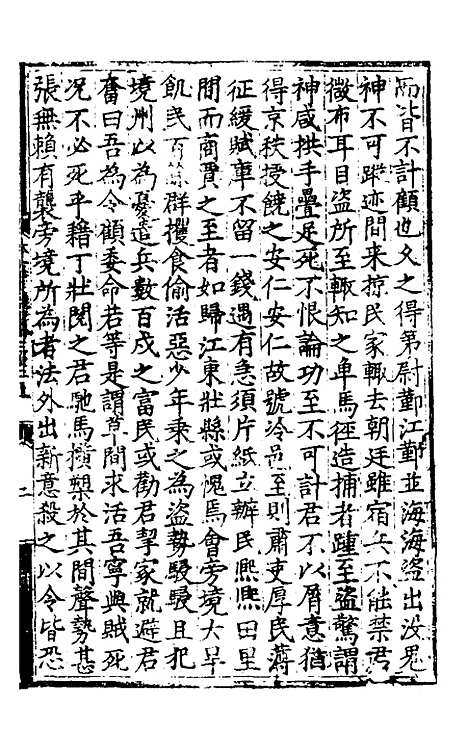 而皆不計顧也久之得第尉鄞江鄞並海海盜出没鬼
神不可蹤迹間来掠民家輙去朝廷雖宿兵不能禁君
微布耳目盜所至輙知之单馬徑造捕者踵至盜驚謂
神咸拱手疊足死不恨論功至不可計君不以屑意猶
得京秩授饒之安仁安仁故號冷邑至則肅吏厚民薄
征緩賦庫不留一錢遇有急須片紙立辦民熈熈田里
間而商賈之至者如歸江東壯縣或愧焉會旁境大旱
飢民百爲群攫食偷活惡少年乘之為盜勢駸駸且犯
境州以為憂遣兵數百戍之富民或勸君挈家就避君
奮曰吾為令顧委命若等是謂草間求活吾寧與賊死
况不必死乎籍丁壯閱之君馳馬横槊於其間聲勢甚
張無賴有襲旁境所為者法外出新意殺之以令皆恐